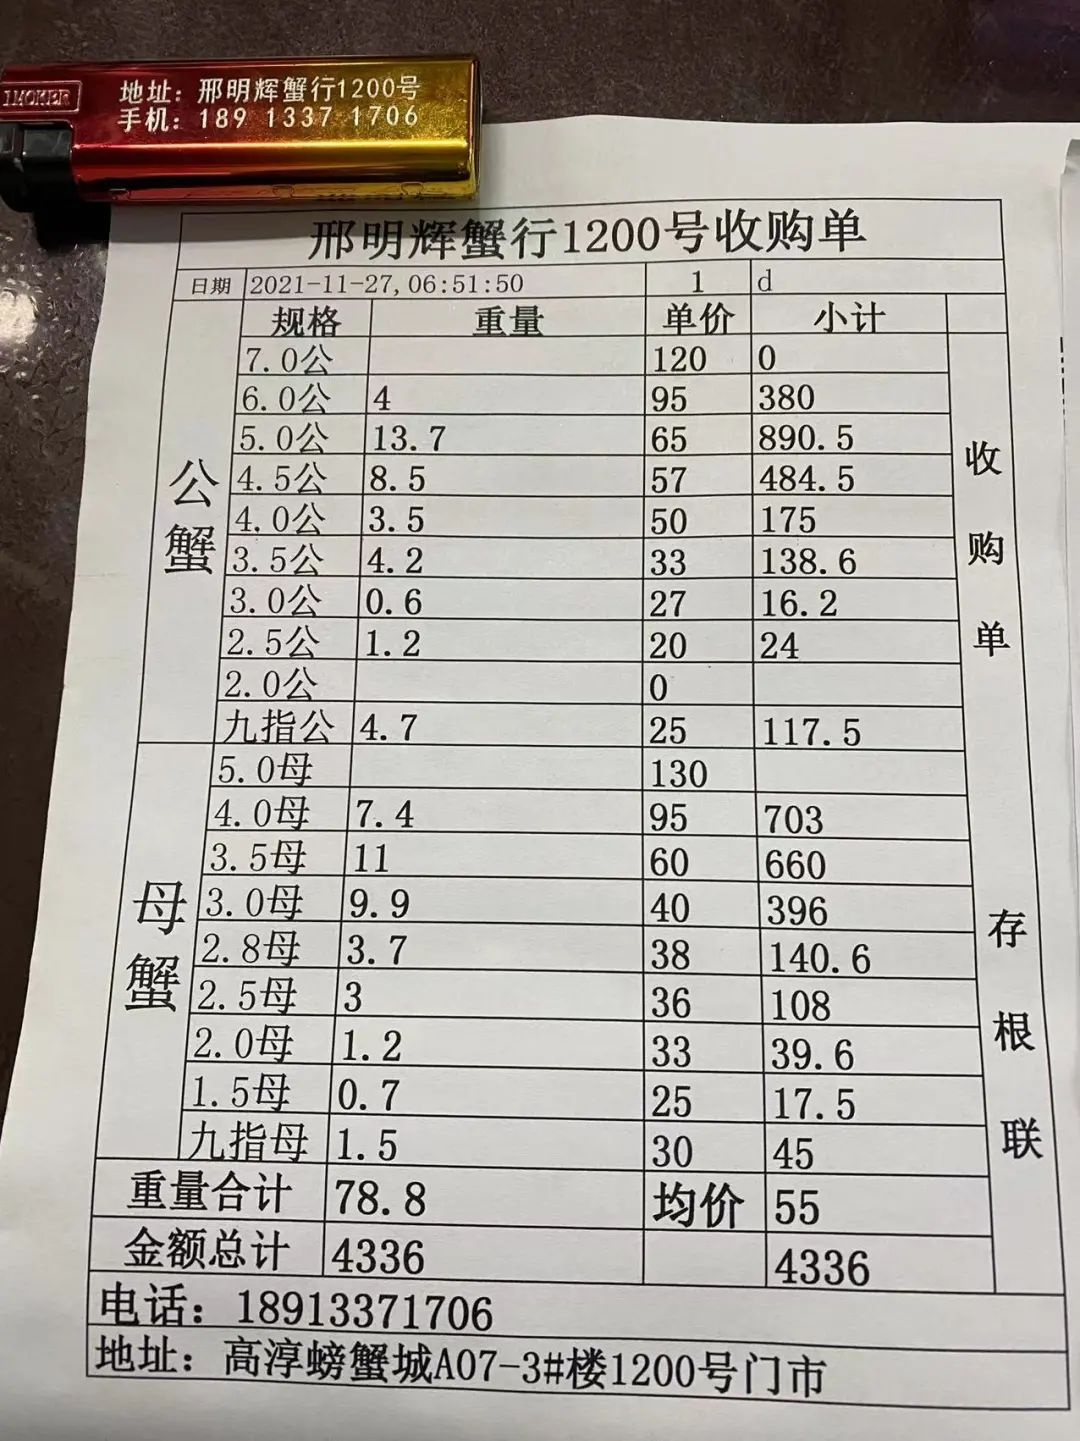 1MOKER
地址：邢明辉蟹行1200号
手机：189 1337 1706
邢明辉蟹行1200号收购单
日期 2021-11-27,06:51:50 1 d
规格 重量 单价 小计
公蟹
7.0公 120 0
6.0公 4 95 380
5.0公 13.7 65 890.5
4.5公 8.5 57 484.5
4.0公 3.5 50 175
3.5公 4.2 33 138.6
3.0公 0.6 27 16.2
2.5公 1.2 20 24
2.0公 0
九指公 4.7 25 117.5
母蟹
5.0母 130
4.0母 7.4 95 703
3.5母 11 60 660
3.0母 9.9 40 396
2.8母 3.7 38 140.6
2.5母 3 36 108
2.0母 1.2 33 39.6
1.5母 0.7 25 17.5
九指母 1.5 30 45
收购单
存根联
重量合计 78.8 均价 55
金额总计 4336 4336
电话：18913371706
地址：高淳螃蟹城A07-3#楼1200号门市